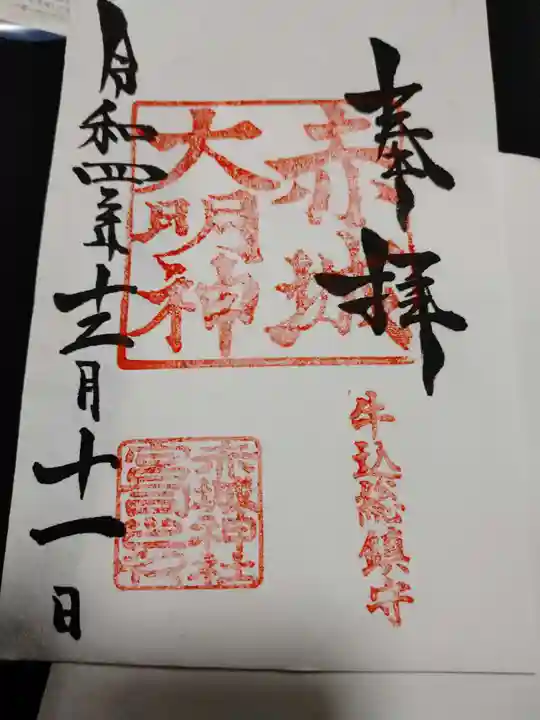 奉拝
赤城
大明神
牛込総鎮守
赤城神社
宮司之印
令和四年十二月十一日